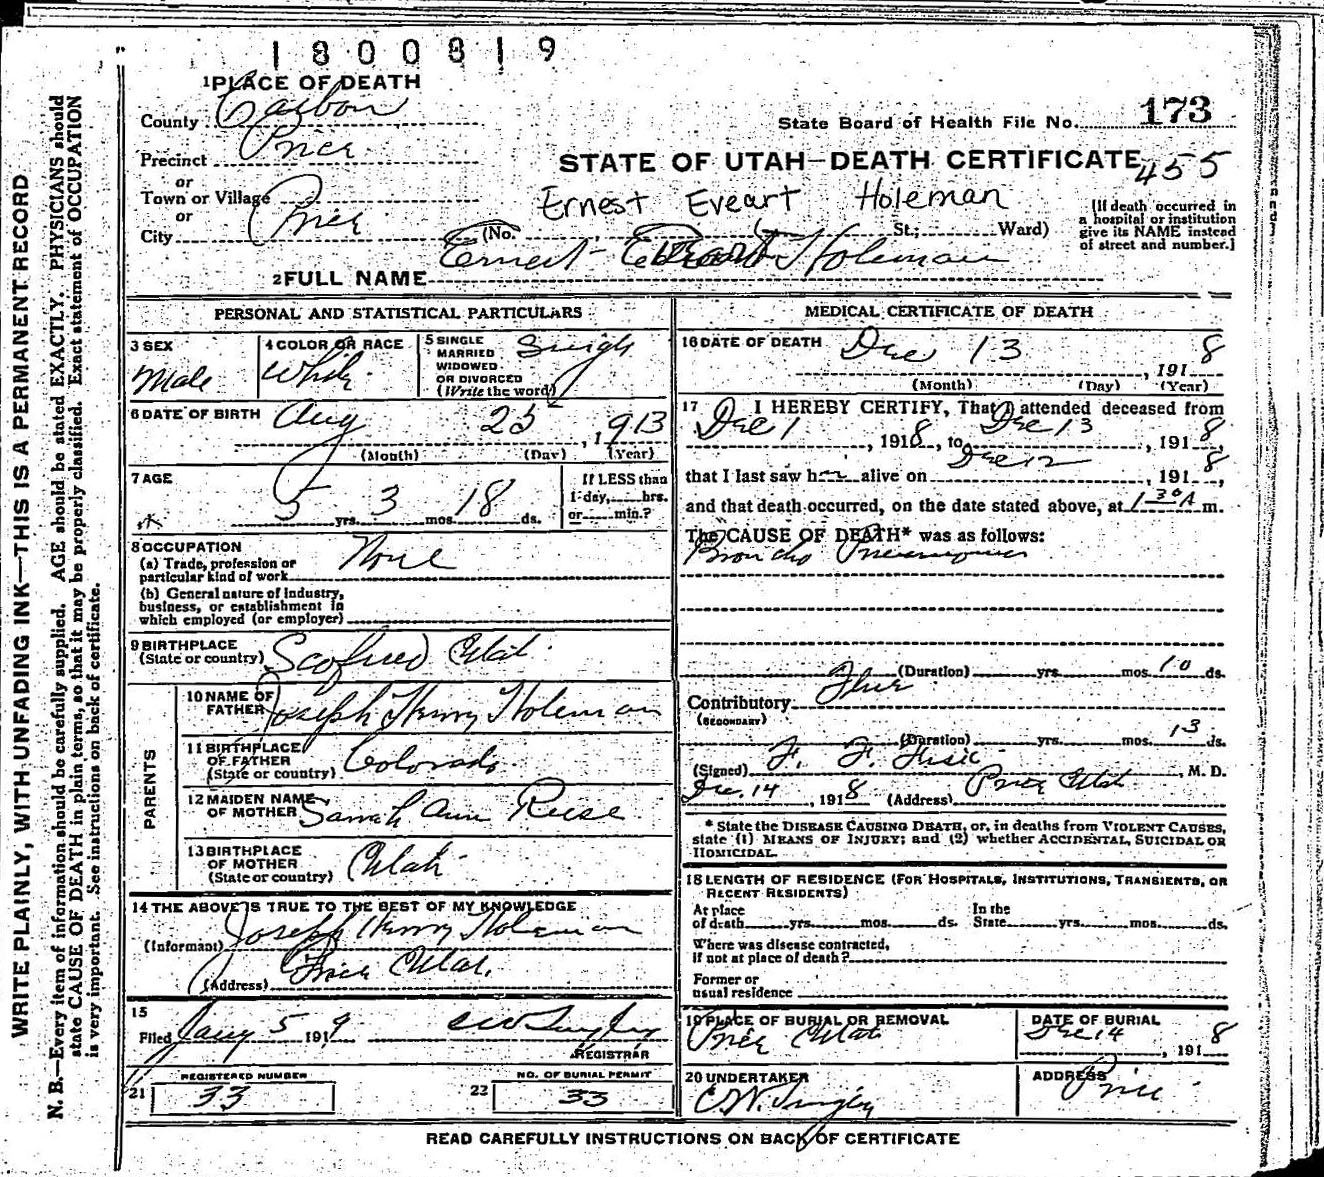 1800819
1 PLACE OF DEATH
County Carbon
Precinct Price
or
Town or Village
or
City Price
State Board of Health File No. 173
STATE OF UTAH—DEATH CERTIFICATE 455
Ernest Eveart Holeman
(No. St.; Ward)
(If death occurred in
a hospital or institution
give its NAME instead
of street and number.]
2 FULL NAME Ernest Holeman
PERSONAL AND STATISTICAL PARTICULARS
3 SEX
Male
4 COLOR OR RACE
White
5 SINGLE
MARRIED
WIDOWED
OR DIVORCED
(Write the word)
Single
6 DATE OF BIRTH
Aug 25, 1913
(Month) (Day) (Year)
7 AGE
5 yrs. 3 mos. 18 ds.
If LESS than
1 day, hrs.
or min.?
8 OCCUPATION
(a) Trade, profession or
particular kind of work None
(b) General nature of industry,
business, or establishment in
which employed (or employer)
9 BIRTHPLACE
(State or country) Scofield Utah
PARENTS
10 NAME OF
FATHER Joseph Henry Holeman
11 BIRTHPLACE
OF FATHER
(State or country) Colorado
12 MAIDEN NAME
OF MOTHER Sarah Ann Reese
13 BIRTHPLACE
OF MOTHER
(State or country) Utah
14 THE ABOVE IS TRUE TO THE BEST OF MY KNOWLEDGE
(Informant) Joseph Henry Holeman
(Address) Price Utah.
15
Filed Jany 5 1919 C W
REGISTRAR
REGISTERED NUMBER
21 33
NO. OF BURIAL PERMIT
22 33
MEDICAL CERTIFICATE OF DEATH
16 DATE OF DEATH Dec 13, 1918
(Month) (Day) (Year)
17 I HEREBY CERTIFY, That I attended deceased from
Dec 1, 1918, to Dec 13, 1918,
that I last saw h alive on Dec 12, 1918,
and that death occurred, on the date stated above, at 1 30 A m.
The CAUSE OF DEATH* was as follows:
Broncho Pneumonia
(Duration) yrs. mos. 10 ds.
Contributory Flue
(SECONDARY)
(Duration) yrs. mos. 13 ds.
(Signed) F. F. Fisk, M. D.
Dec. 14, 1918 (Address) Price Utah
* State the DISEASE CAUSING DEATH, or, in deaths from VIOLENT CAUSES,
state (1) MEANS OF INJURY; and (2) whether ACCIDENTAL, SUICIDAL OR
HOMICIDAL.
18 LENGTH OF RESIDENCE (FOR HOSPITALS, INSTITUTIONS, TRANSIENTS, OR
RECENT RESIDENTS)
At place
of death yrs. mos. ds.
In the
State yrs. mos. ds.
Where was disease contracted,
if not at place of death?
Former or
usual residence
19 PLACE OF BURIAL OR REMOVAL
Price Utah
DATE OF BURIAL
Dec 14, 1918
20 UNDERTAKER
C.W.
ADDRESS
Price
READ CAREFULLY INSTRUCTIONS ON BACK OF CERTIFICATE
WRITE PLAINLY, WITH UNFADING INK—THIS IS A PERMANENT RECORD
N. B.—Every item of information should be carefully supplied. AGE should be stated EXACTLY. PHYSICIANS should
state CAUSE OF DEATH in plain terms, so that it may be properly classified. Exact statement of OCCUPATION
is very important. See instructions on back of certificate.